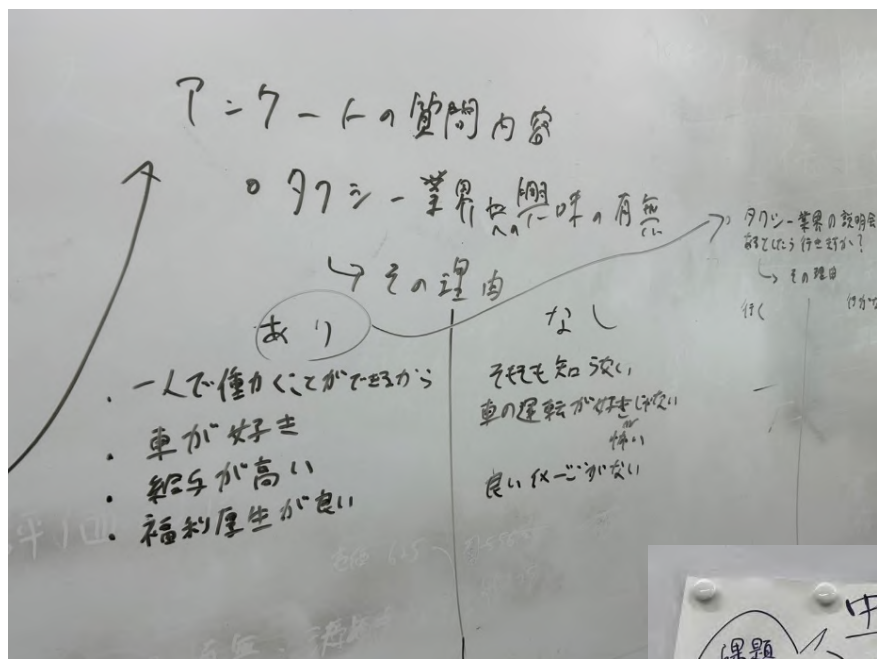 アンケートの質問内容
○ タクシー業界への興味の有無
↳ その理由
あり
・一人で働くことができるから
・車が好き
・給与が高い
・福利厚生が良い
なし
そもそも知らない
車の運転が好きじゃない
怖い
良いイメージがない
タクシー業界の説明会
あるとしたら行きますか?
↳ その理由
行く
行かな
課題
中